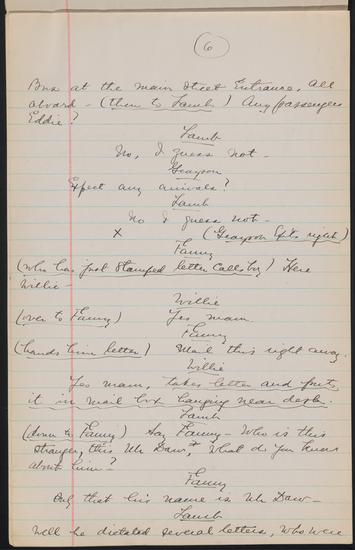 6
Bus at the main Street Entrance, All
aboard - (then to Lamb) Any passengers
Eddie?
Lamb
No, I guess not -
Grayson
Expect any arrivals?
Lamb
No I guess not -
X (Grayson Exits right)
Fanny
(who has just stamped letter calls boy) Here
Willie -
Willie
(over to Fanny) Yes mam
Fanny
(hands him letter) Mail this right away.
Willie
Yes mam, takes letter and puts
it in mail box hanging near desk.
Lamb
(down to Fanny) Say Fanny - Who is this
stranger, this Mr Daw, What do you know
about him?
Fanny
Only that his name is Mr Daw -
Lamb
Well he dictated several letters, who were